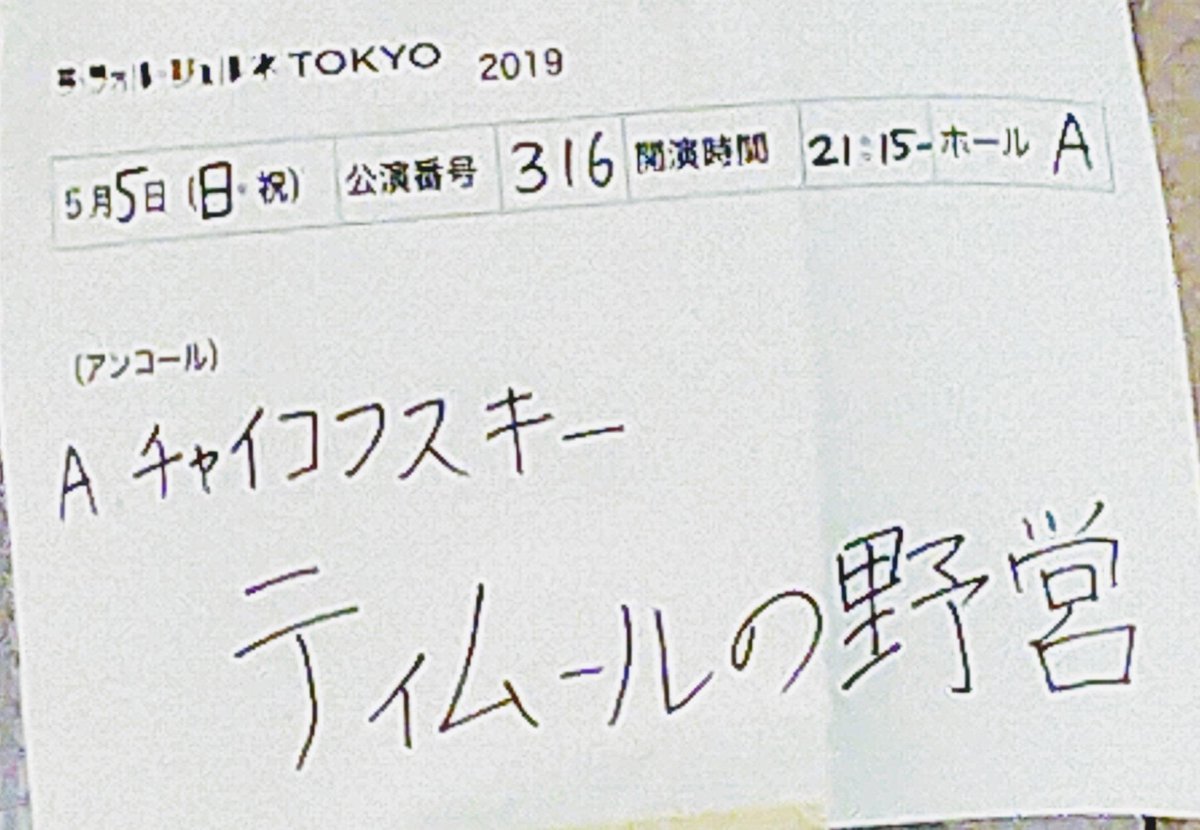 TOKYO 2019
5月5日(日・祝) 公演番号 316 開演時間 21:15- ホール A
(アンコール)
A チャイコフスキー
ティムールの野営